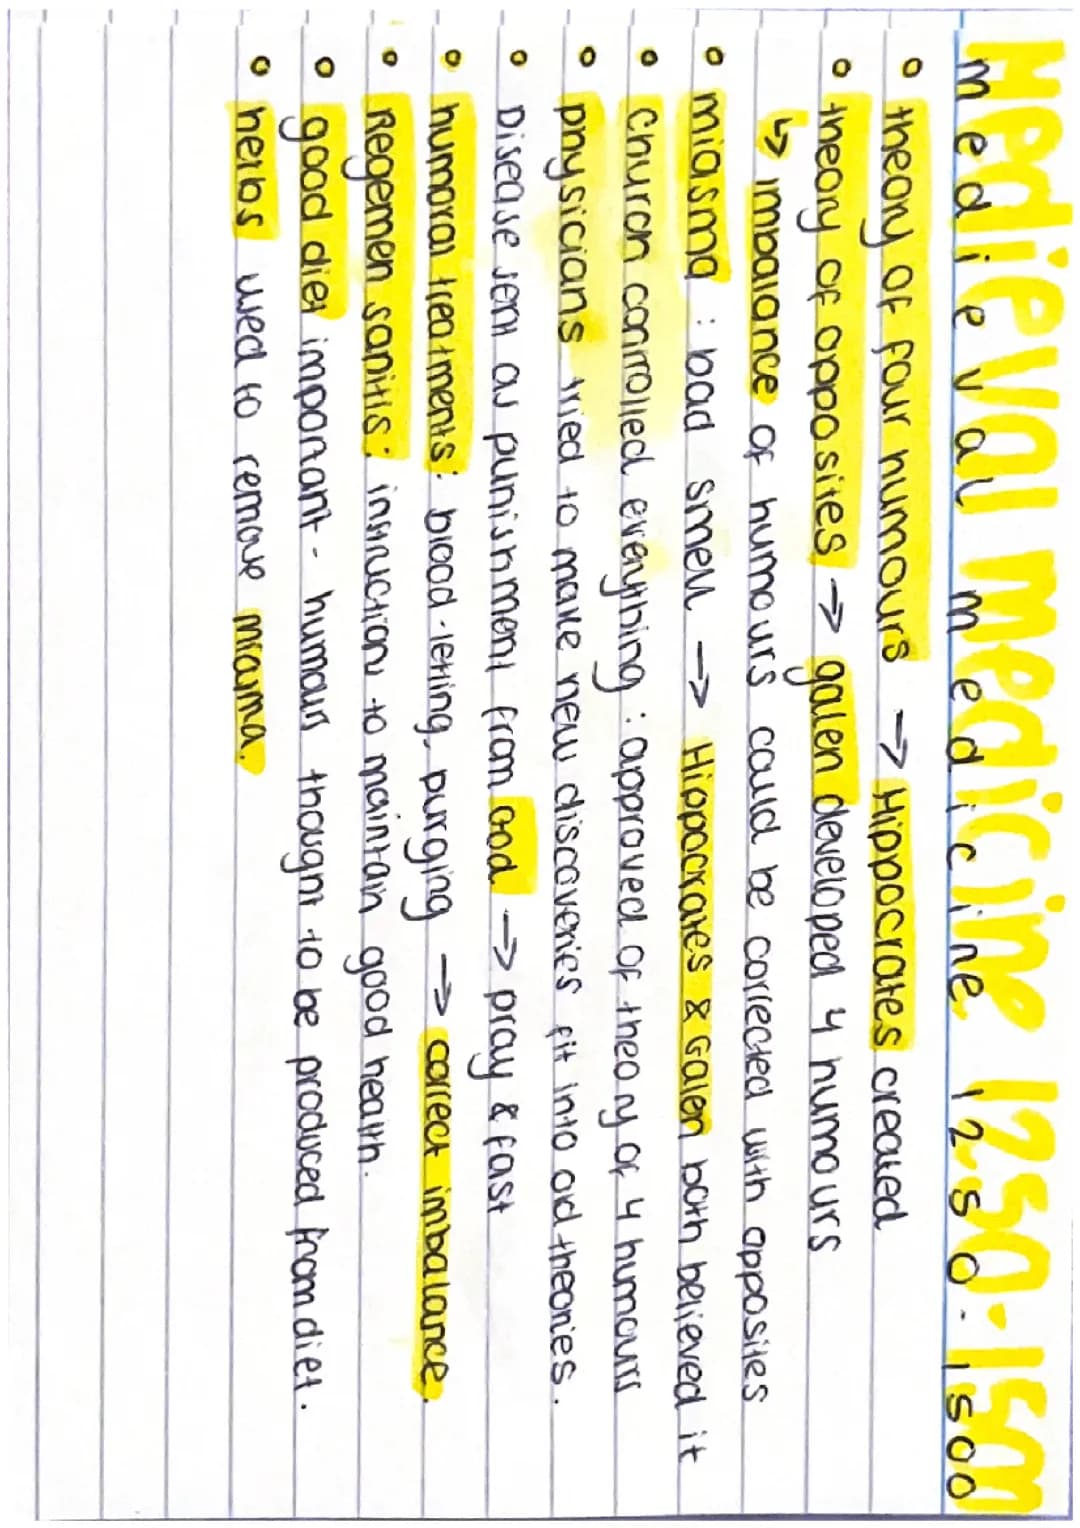 Medieval medicine 1250-1500
medieval medicine 1250-1500
theory of four humours → Hippocrates created
theory of opposites → galen developed 4 humours
↳ imbalance of humours could be corrected with opposites
miasma : bad smell → Hippocrates & Galen both believed it
Church controlled everything : approved of theory of 4 humours
physicians tried to make new discoveries fit into old theories.
Disease sent as punishment from God → pray & fast
humoral treatments: blood-letting, purging → correct imbalance.
Regemen sanitis: instruction to maintain good health.
good diet important - humours thought to be produced from diet.
herbs used to remove miasma.